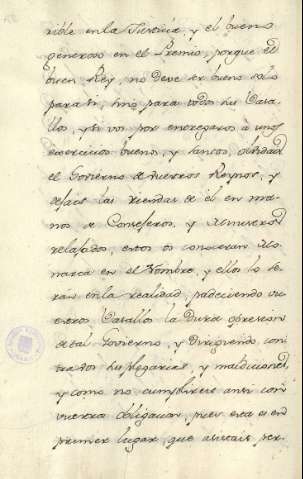 rible en la Justicia y el bueno
generoso en el Premio, porque el
buen Rey, no deve ser bueno solo
para si, sino para todos sus Vasa
llos, y si vos por entregaros à unos
exercicios buenos, y santos, olvidais
el Govierno de vuestros Reynos, y
dejais las riendas de él en ma
nos de Consejeros, y Ministros
relajados, estos os conservan Mo
narca en el Nombre, y ellos lo se
ran en la realidad, padeciendo vu
estros Vasallos la dura opresion
de tal Govierno, y dirigiendo con
tra vos sus plegarias, y maldiciones
y como no cumplireis assi con
vuestra obligacion, pues esta es en
primer lugar, que asistais per